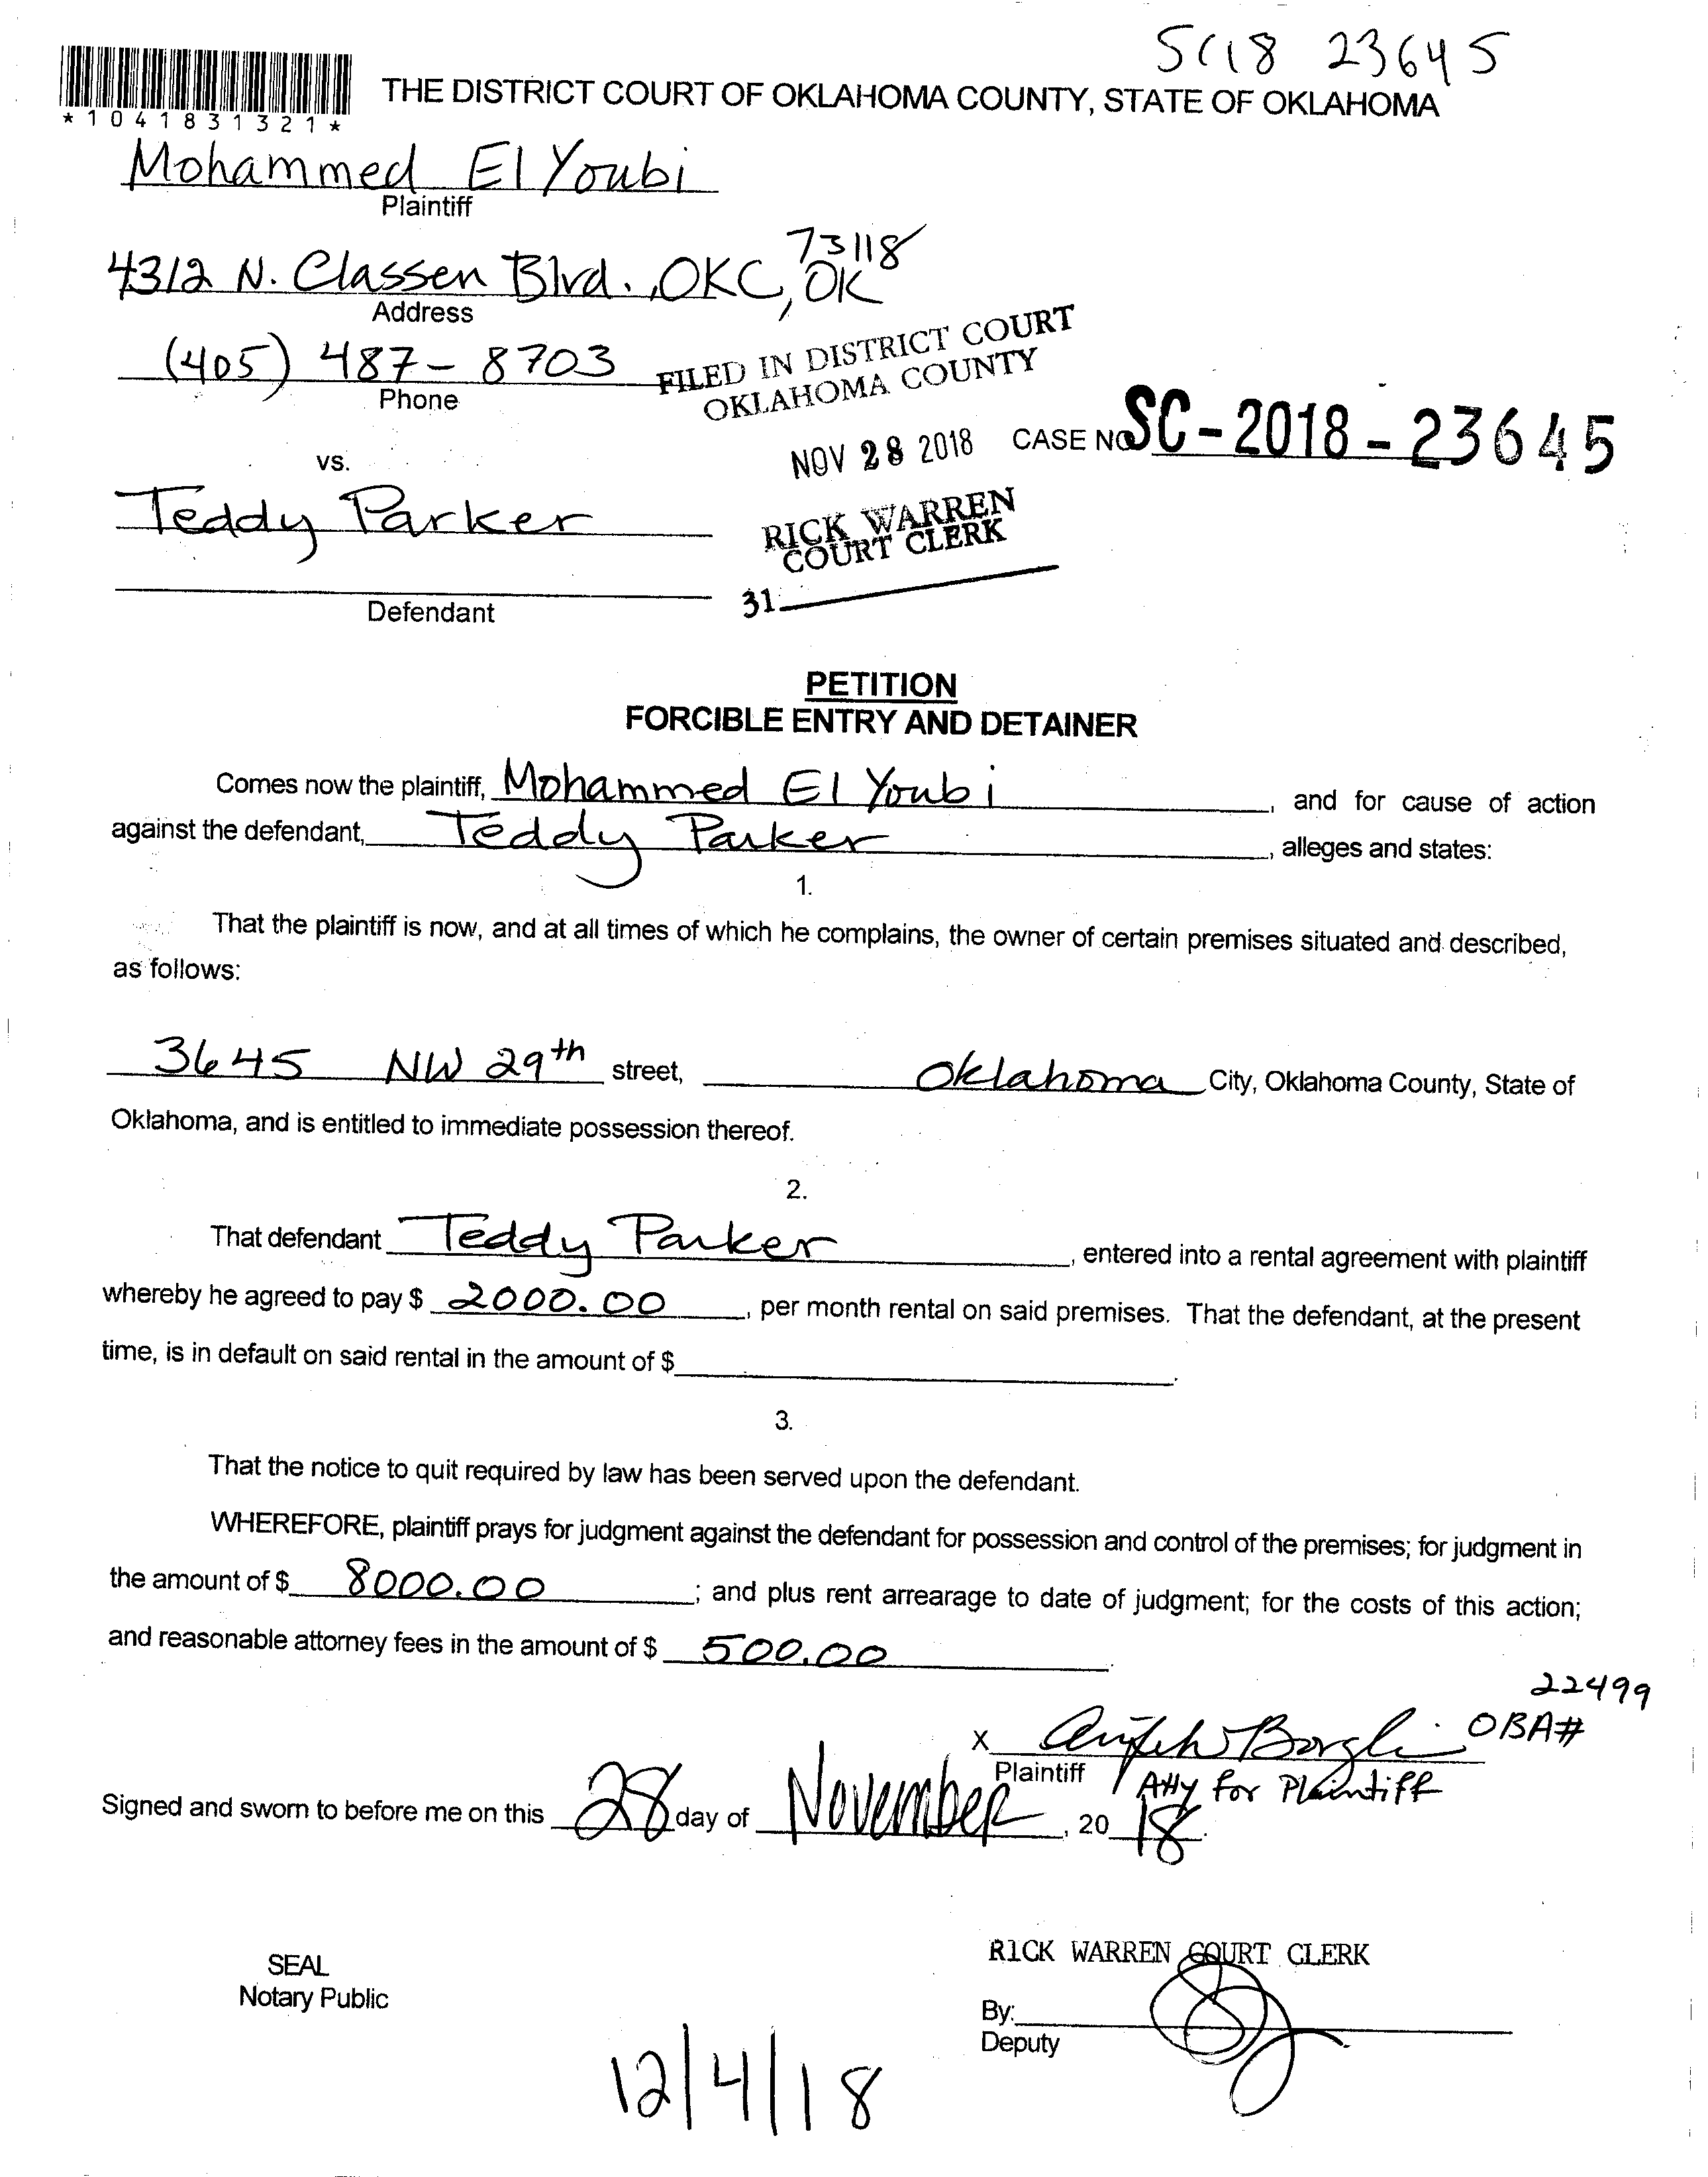 SC18 23645
THE DISTRICT COURT OF OKLAHOMA COUNTY, STATE OF OKLAHOMA
*1041831321*
Mohammed El Youbi
Plaintiff
73118
4312 N. Classen Blvd., OKC, OK
Address
(405) 487-8703
Phone
FILED IN DISTRICT COURT
OKLAHOMA COUNTY
NOV 28 2018
CASE NO SC-2018-23645
vs.
Teddy Parker
RICK WARREN
COURT CLERK
31
Defendant
PETITION
FORCIBLE ENTRY AND DETAINER
Comes now the plaintiff, Mohammed El Youbi, and for cause of action
against the defendant, Teddy Parker, alleges and states:
1.
That the plaintiff is now, and at all times of which he complains, the owner of certain premises situated and described,
as follows:
3645 NW 29th street, Oklahoma City, Oklahoma County, State of
Oklahoma, and is entitled to immediate possession thereof.
2.
That defendant Teddy Parker, entered into a rental agreement with plaintiff
whereby he agreed to pay $ 2000.00, per month rental on said premises. That the defendant, at the present
time, is in default on said rental in the amount of $ .
3.
That the notice to quit required by law has been served upon the defendant.
WHEREFORE, plaintiff prays for judgment against the defendant for possession and control of the premises; for judgment in
the amount of $ 8000.00; and plus rent arrearage to date of judgment; for the costs of this action;
and reasonable attorney fees in the amount of $ 500.00.
22499
X OBA#
Plaintiff Atty for Plaintiff
Signed and sworn to before me on this 28 day of November, 2018.
RICK WARREN COURT CLERK
SEAL
Notary Public
By:
Deputy
12/4/18